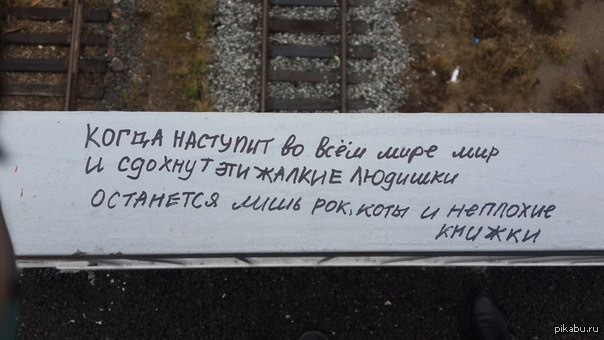 КОГДА НАСТУПИТ ВО ВСЁМ МИРЕ МИР
И СДОХНУТ ЭТИ ЖАЛКИЕ ЛЮДИШКИ
ОСТАНЕТСЯ ЛИШЬ РОК, КОТЫ И НЕПЛОХИЕ
КНИЖКИ
pikabu.ru